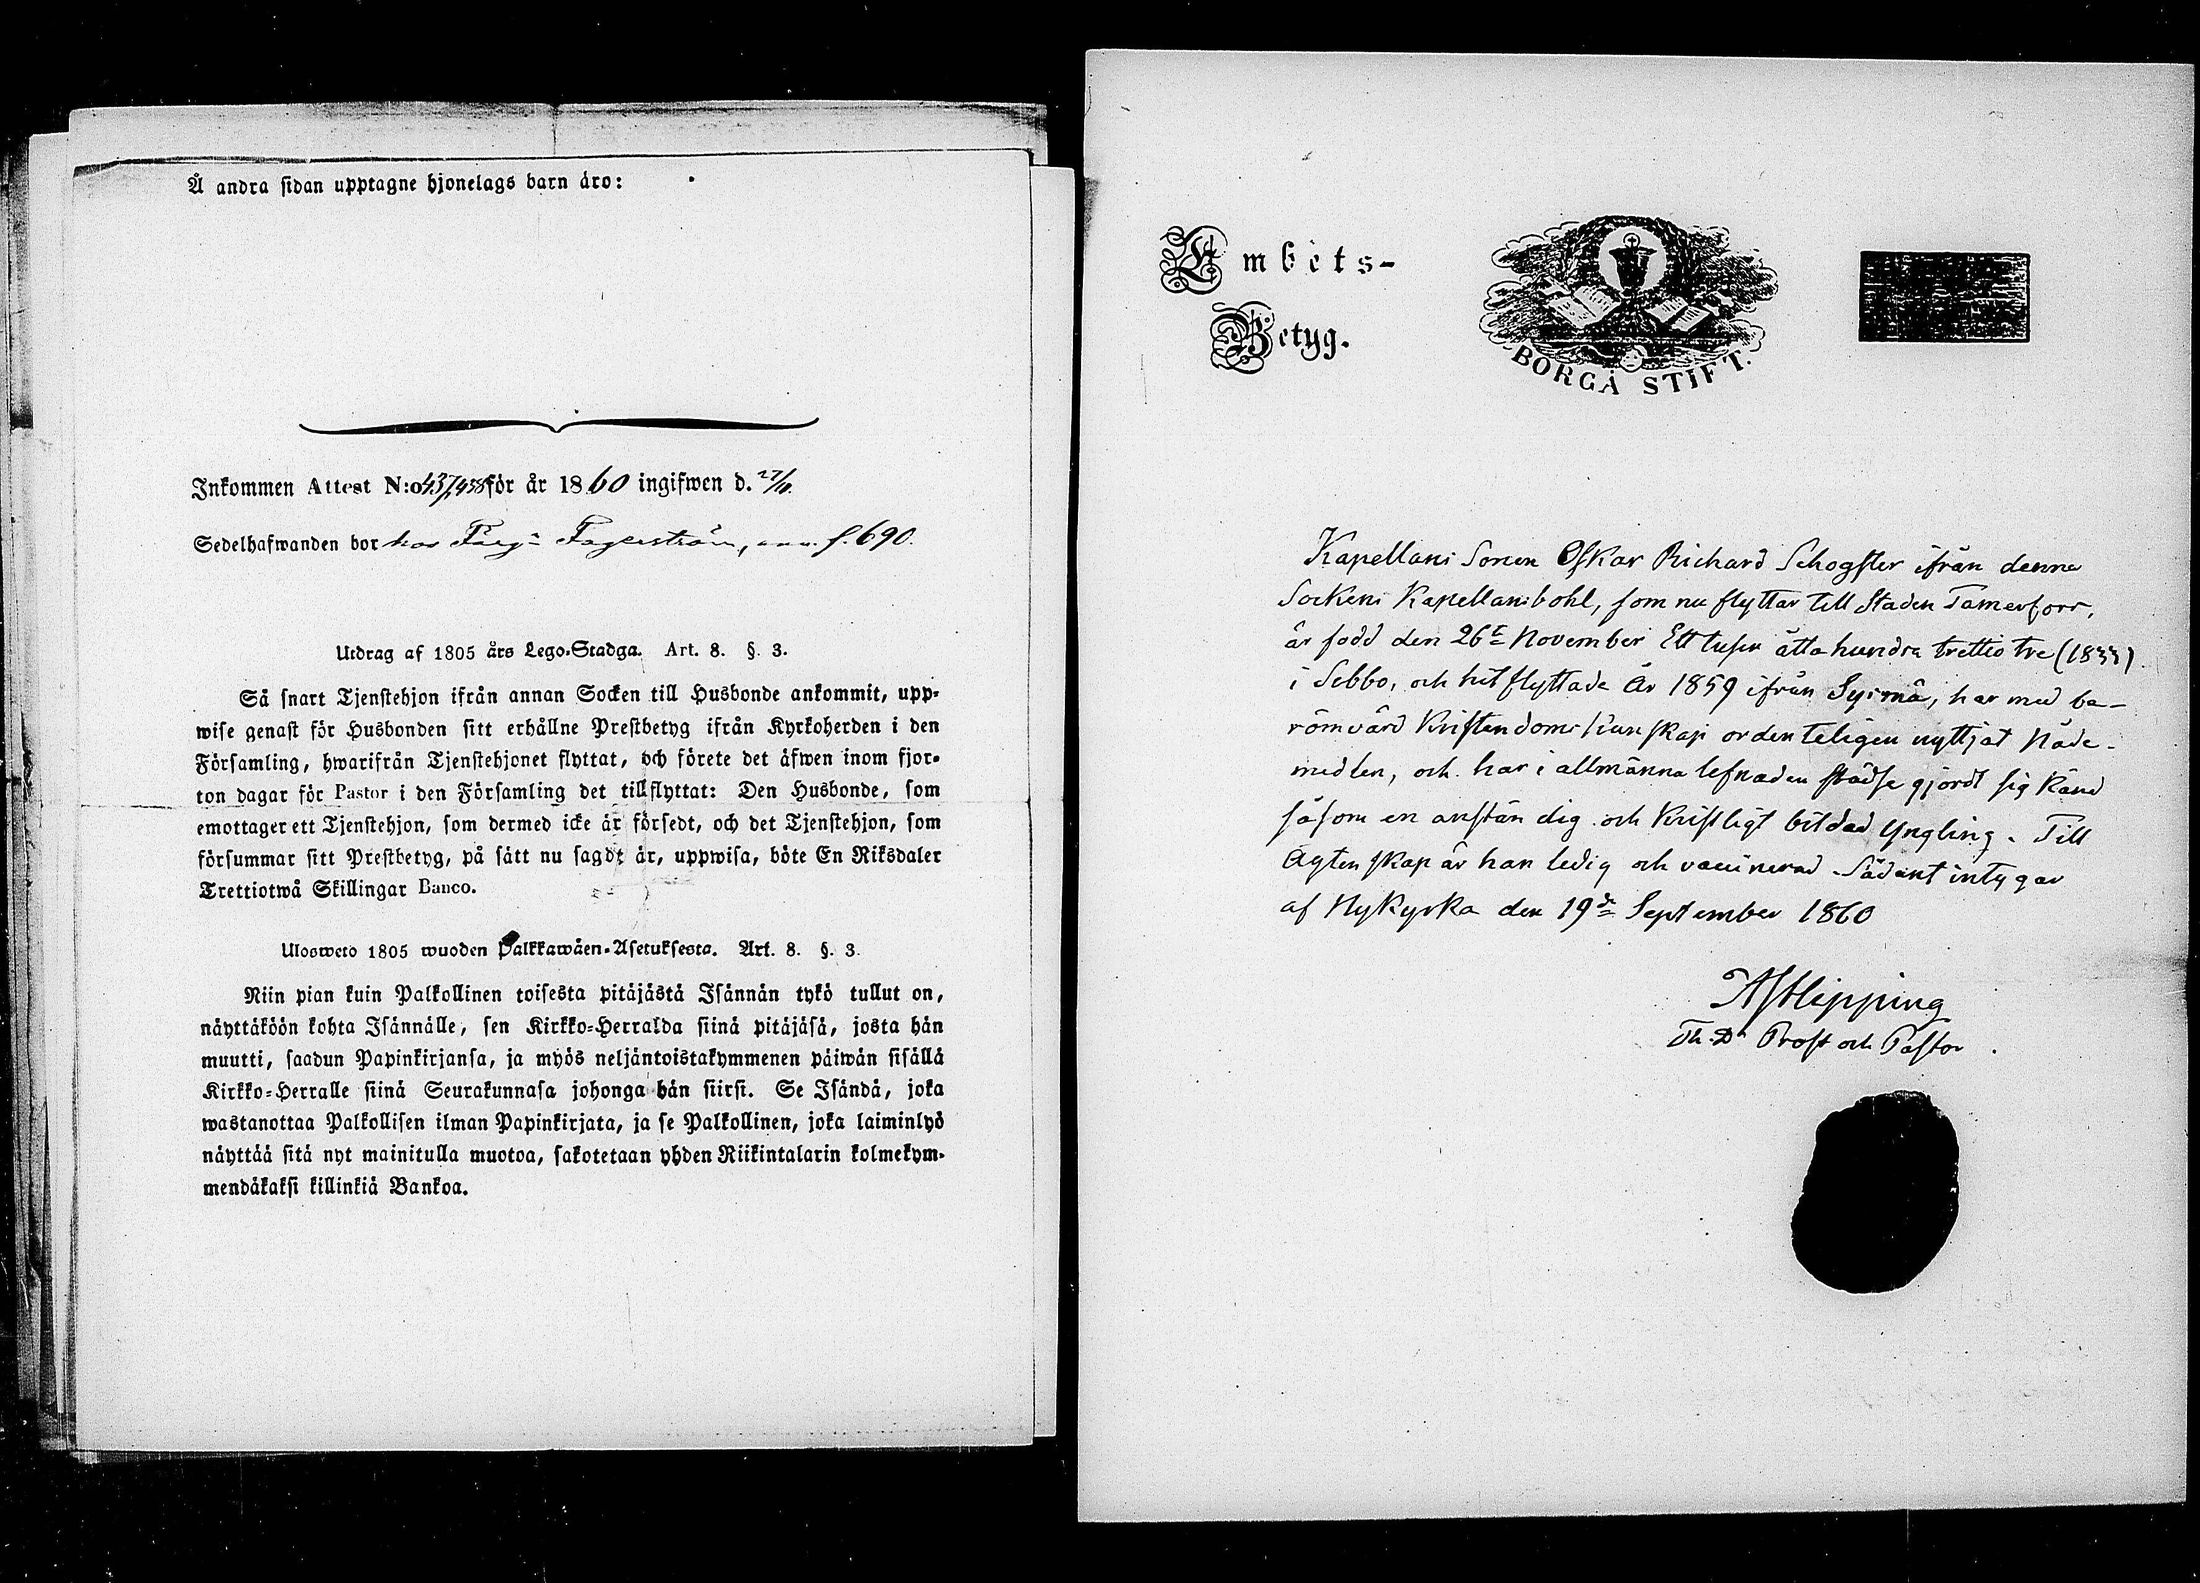 Å andra sidan upptagne hjonelags barn äro:
Inkommen Attest N:o 437,438 för år 1860 ingifwen d. 27/11.
Sedelhafwanden bor hos Färg: Fagerström, f. 690.
Utdrag af 1805 års Lego-Stadga. Art. 8. §. 3.
Så snart Tjenstehjon ifrån annan Socken till Husbonde ankommit, upp-
wise genast för Husbonden sitt erhållne Prestbetyg ifrån Kyrkoherden i den
Församling, hwarifrån Tjenstehjonet flyttat, och förete det äfwen inom fjor-
ton dagar för Pastor i den Församling det tillflyttat: Den Husbonde, som
emottager ett Tjenstehjon, som dermed icke är försedt, och det Tjenstehjon, som
försummar sitt Prestbetyg, på sätt nu sagdt är, uppwisa, böte En Riksdaler
Trettiotwå Skillingar Banco.
Ulosweto 1805 wuoden Palkkawäen-Asetuksesta. Art. 8. §. 3.
Niin pian kuin Palkollinen toisesta pitäjästä Isännän tykö tullut on,
näyttäköön kohta Isännälle, sen Kirkko-Herralda siinä pitäjäsä, josta hän
muutti, saadun Papinkirjansa, ja myös neljäntoistakymmenen päiwän sisällä
Kirkko-Herralle siinä Seurakunnasa johonga hän siirsi. Se Isändä, joka
wastanottaa Palkollisen ilman Papinkirjata, ja se Palkollinen, joka laiminlyö
näyttää sitä nyt mainitulla muotoa, sakotetaan yhden Riikintalarin kolmekym-
mendäkaksi killinkiä Bankoa.
Embets-
Betyg.
BORGÅ STIFT.
Kapellans Sonen Oskar Richard Schogster ifrån denna
Sockens Kapellansbohl, som nu flyttar till Staden Tamerfors,
är född den 26te November Ett tusen åtta hundra trettio tre (1833)
i Sibbo, och hitflyttade År 1859 ifrån Sysmä, har med be-
römvärd Kristendoms kunskap ordenteligen nyttjat Nåde-
medlen, och har i allmänna lefnaden städse gjordt sig känd
såsom en anständig och kristligt bildad Yngling. Till
Ägtenskap är han ledig och vaccinerad. Sådant intygar
af Nykyrka den 19de September 1860
A Hipping
Th. Dr Prost och Pastor.